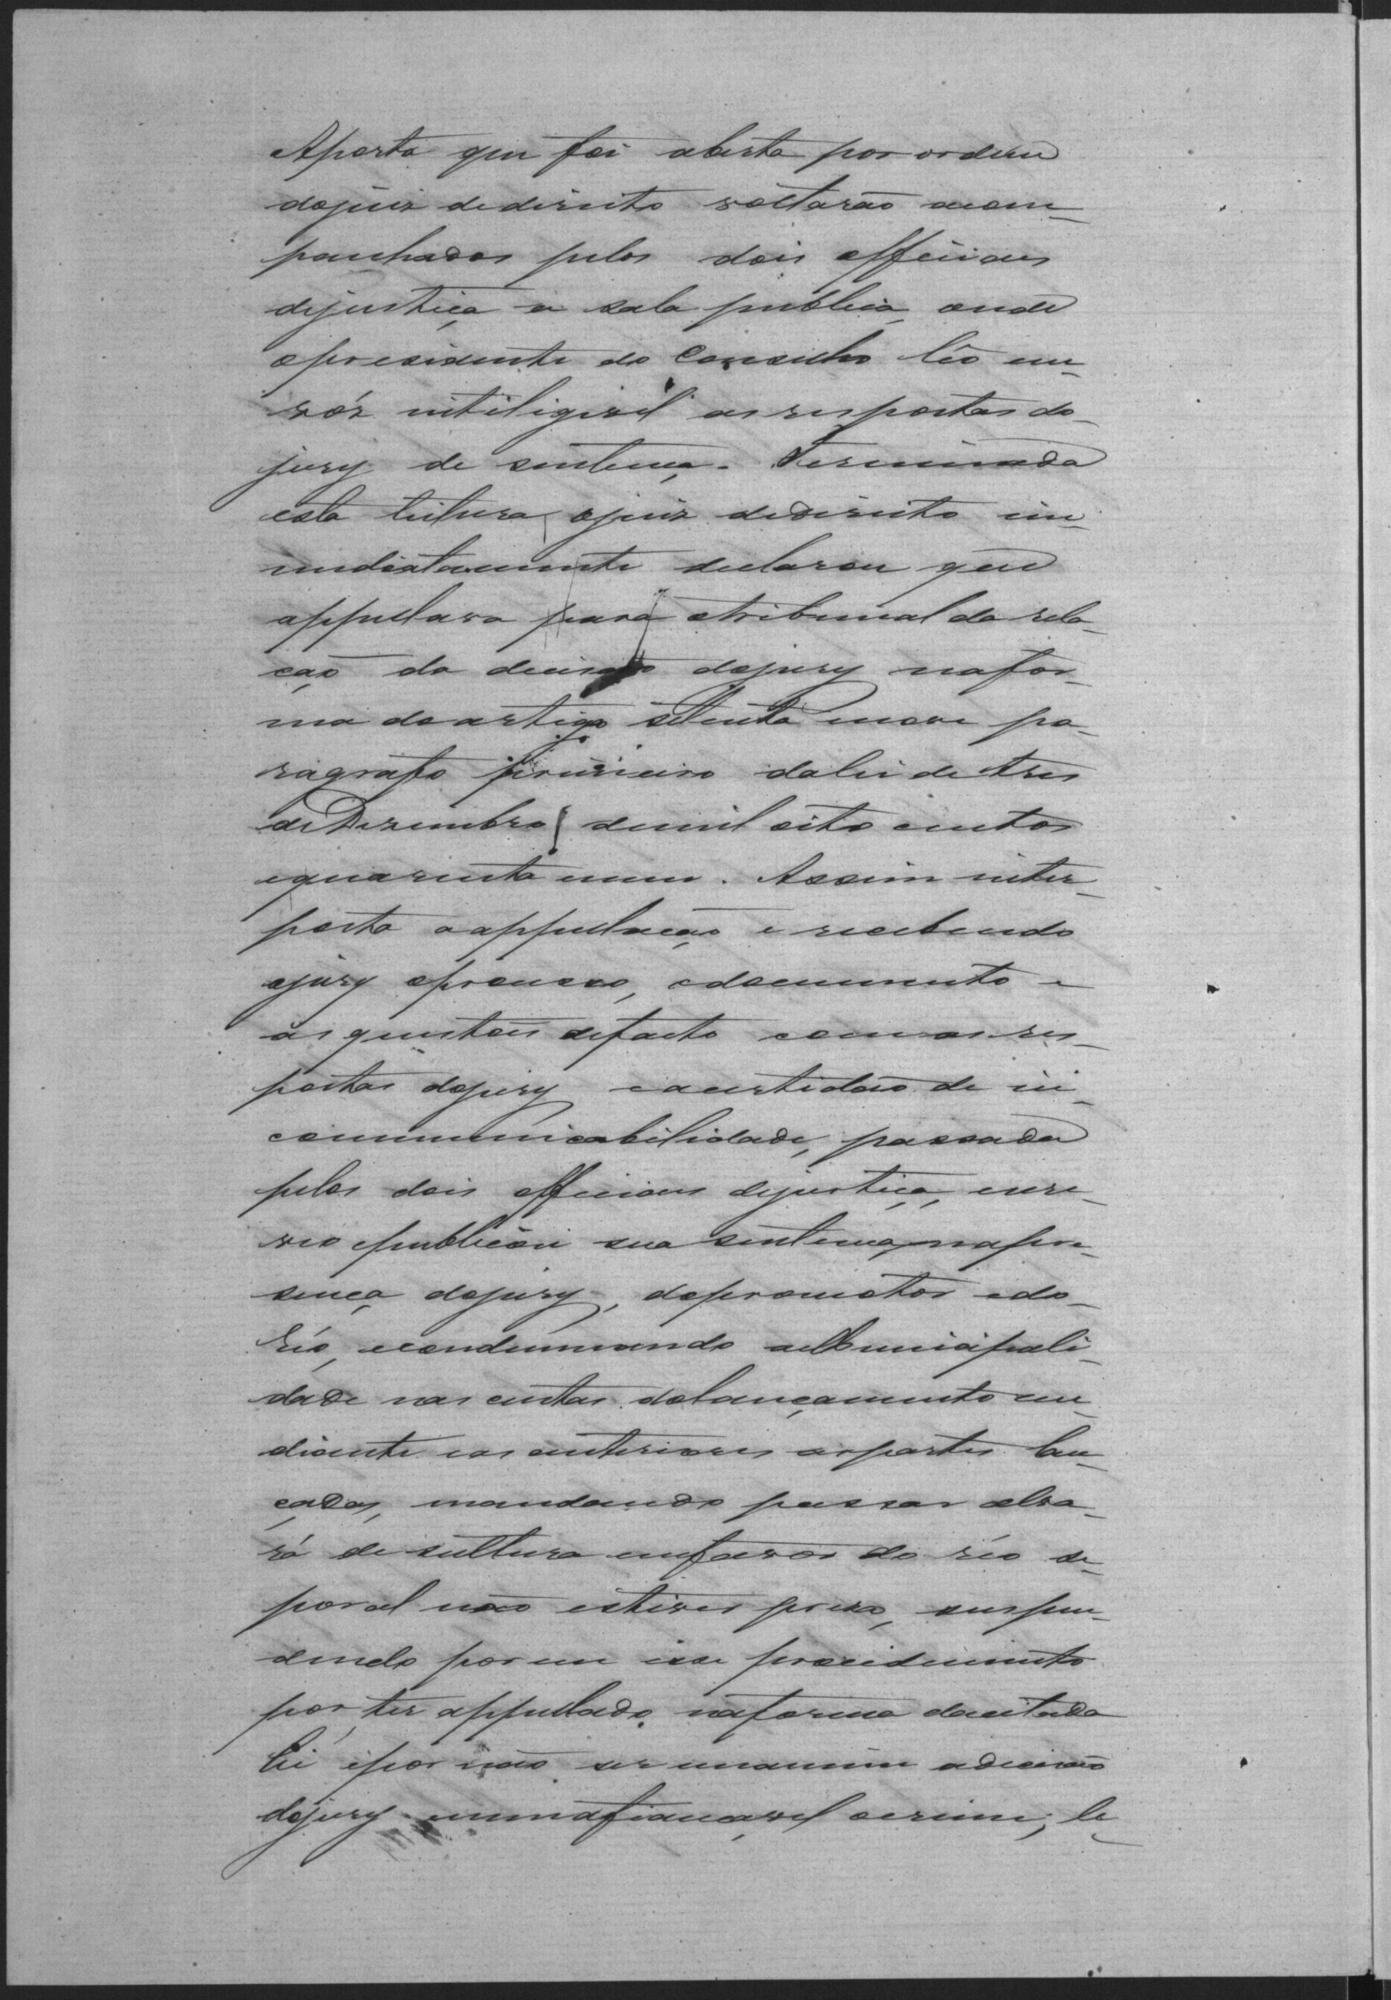 Aporta que foi aberta por ordem
dojuiz dedireito voltarão acom-
panhados pelos dois officiaes
dejustiça a sala publica, onde
opresidente do Conselho lêo em
vóz intiligivel as respostas do
jury de sentença. Terminada
esta leitura, ojuiz dedireito im-
mediatamente declarou que
appellava para otribunal da rela-
ção da decisão dojury nafor-
ma doartigo setenta nove pa-
ragrafo primeiro dalei de tres
deDezembro demil oito centos
equarenta eum. Assim inter-
posta aappellação e recebendo
ojury oprocesso, odocumento e
as questões defacto comas res-
postas dojury eacertidão de in-
communicabilidade, passada
pelos dois officiaes dejustiça, escre-
veo epublicou sua sentença napre-
sença dojury, dopromotor edo
réo, econdemnando aMunicipali-
dade nas custas, dolançamento em
diante eas anteriores aspartes lan-
çadas, mandando passar alva-
rá de soltura emfavor do réo se
poral não estiver preso, suspen-
dendo porem esse procedimento
por ter appellado, naforma dacitada
lei epor não ser unanime adecisão
dojury einnafiançavel ocrime; le